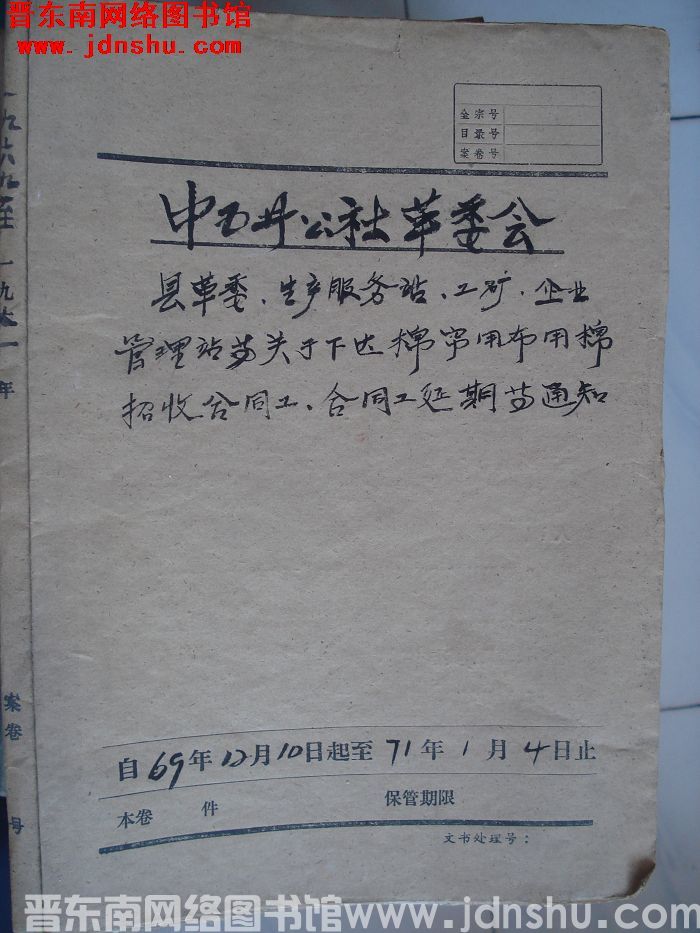 晋东南网络图书馆
www.jdnshu.com
全宗号
目录号
案卷号
中西井公社革委会
县革委、生产服务站、工矿、企业
管理站等关于下达棉帘用布用棉
招收合同工、合同工延期等通知
自69年12月10日起至71年1月4日止
本卷 件 保管期限
文书处理号：
一九六九至一九七一年
案卷 号
晋东南网络图书馆 www.jdnshu.com